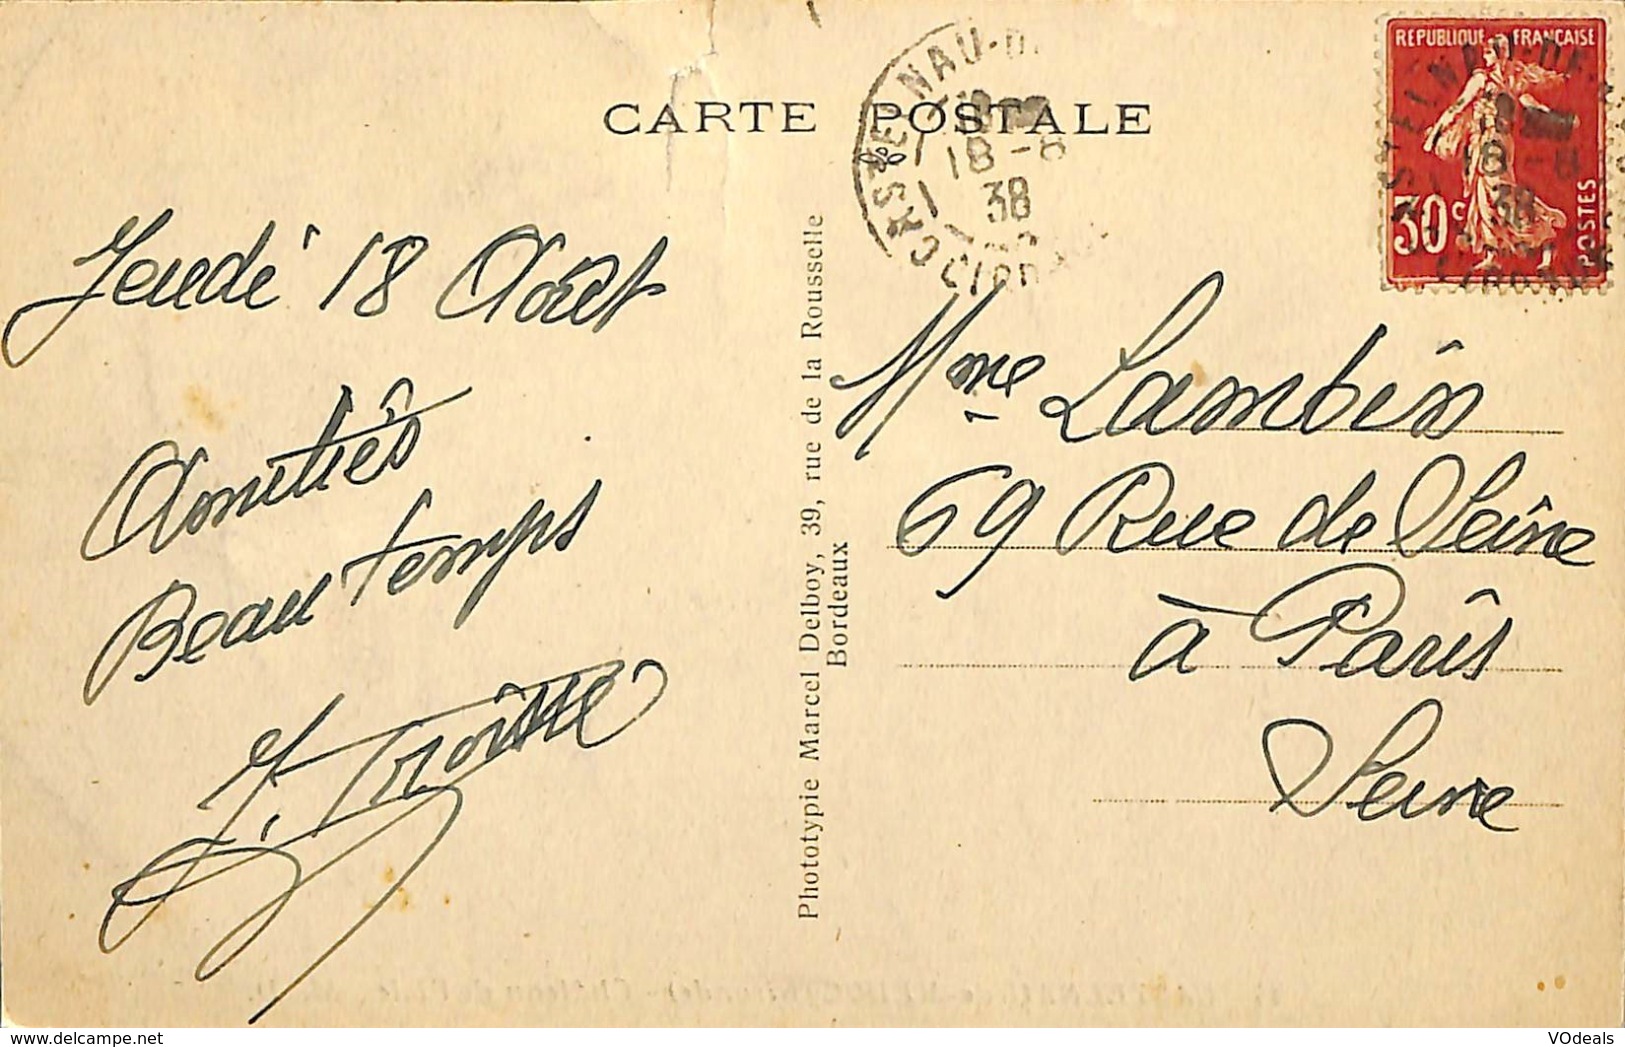 CARTE POSTALE
REPUBLIQUE FRANÇAISE
30c
POSTES
CASTELNAU-D
18-8
38
GIRONDE
Jeudi 18 Août
Amitiés
Beau temps
Mme Lambin
69 Rue de Seine
à Paris
Seine
Phototypie Marcel Delboy, 39, rue de la Rousselle
Bordeaux
VOdeals